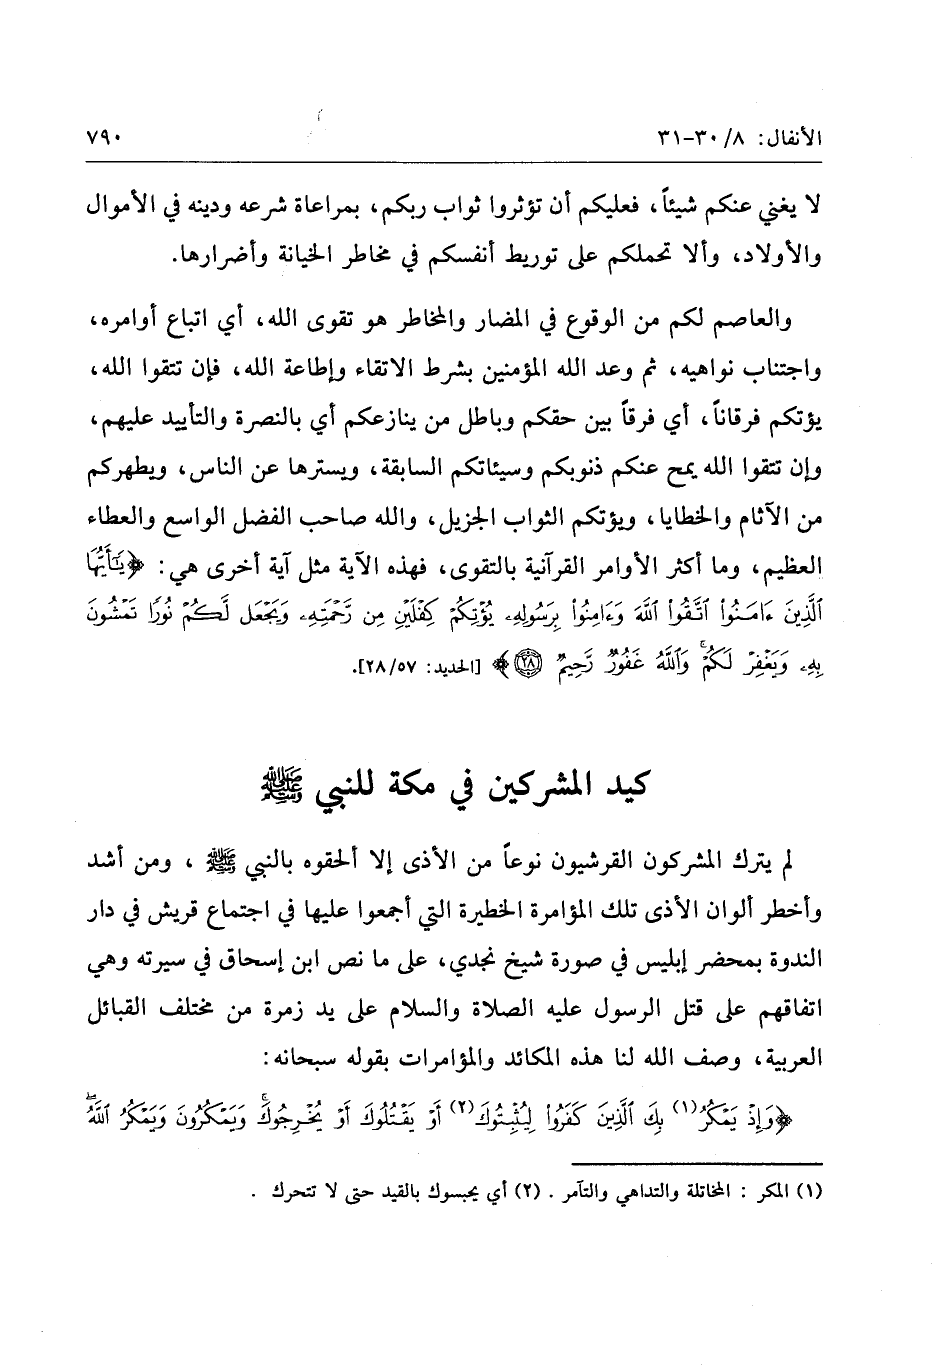 الأنفال: ٨/ ٣٠-٣١ ٧٩٠
لا يغني عنكم شيئاً، فعليكم أن تؤثروا ثواب ربكم، بمراعاة شرعه ودينه في الأموال
والأولاد، وألا تحملكم على توريط أنفسكم في مخاطر الخيانة وأضرارها.
والعاصم لكم من الوقوع في المضار والمخاطر هو تقوى الله، أي اتباع أوامره،
واجتناب نواهيه، ثم وعد الله المؤمنين بشرط الاتقاء وإطاعة الله، فإن تتقوا الله،
يؤتكم فرقاناً، أي فرقاً بين حقكم وباطل من ينازعكم أي بالنصرة والتأييد عليهم،
وإن تتقوا الله يمح عنكم ذنوبكم وسيئاتكم السابقة، ويسترها عن الناس، ويطهركم
من الآثام والخطايا، ويؤتكم الثواب الجزيل، والله صاحب الفضل الواسع والعطاء
العظيم، وما أكثر الأوامر القرآنية بالتقوى، فهذه الآية مثل آية أخرى هي: ﴿يَٰٓأَيُّهَا
ٱلَّذِينَ ءَامَنُوا۟ ٱتَّقُوا۟ ٱللَّهَ وَءَامِنُوا۟ بِرَسُولِهِۦ يُؤْتِكُمْ كِفْلَيْنِ مِن رَّحْمَتِهِۦ وَيَجْعَل لَّكُمْ نُورًا تَمْشُونَ
بِهِۦ وَيَغْفِرْ لَكُمْ ۚ وَٱللَّهُ غَفُورٌ رَّحِيمٌ ﴿٢٨﴾﴾ [الحديد: ٢٨/٥٧].
كيد المشركين في مكة للنبي ﷺ
لم يترك المشركون القرشيون نوعاً من الأذى إلا ألحقوه بالنبي ﷺ ، ومن أشد
وأخطر ألوان الأذى تلك المؤامرة الخطيرة التي أجمعوا عليها في اجتماع قريش في دار
الندوة بمحضر إبليس في صورة شيخ نجدي، على ما نص ابن إسحاق في سيرته وهي
اتفاقهم على قتل الرسول عليه الصلاة والسلام على يد زمرة من مختلف القبائل
العربية، وصف الله لنا هذه المكائد والمؤامرات بقوله سبحانه:
﴿وَإِذْ يَمْكُرُ(١) بِكَ ٱلَّذِينَ كَفَرُوا۟ لِيُثْبِتُوكَ(٢) أَوْ يَقْتُلُوكَ أَوْ يُخْرِجُوكَ ۚ وَيَمْكُرُونَ وَيَمْكُرُ ٱللَّهُ ۖ
(١) المكر : المخاتلة والتداهي والتآمر . (٢) أي يحبسوك بالقيد حتى لا تتحرك .